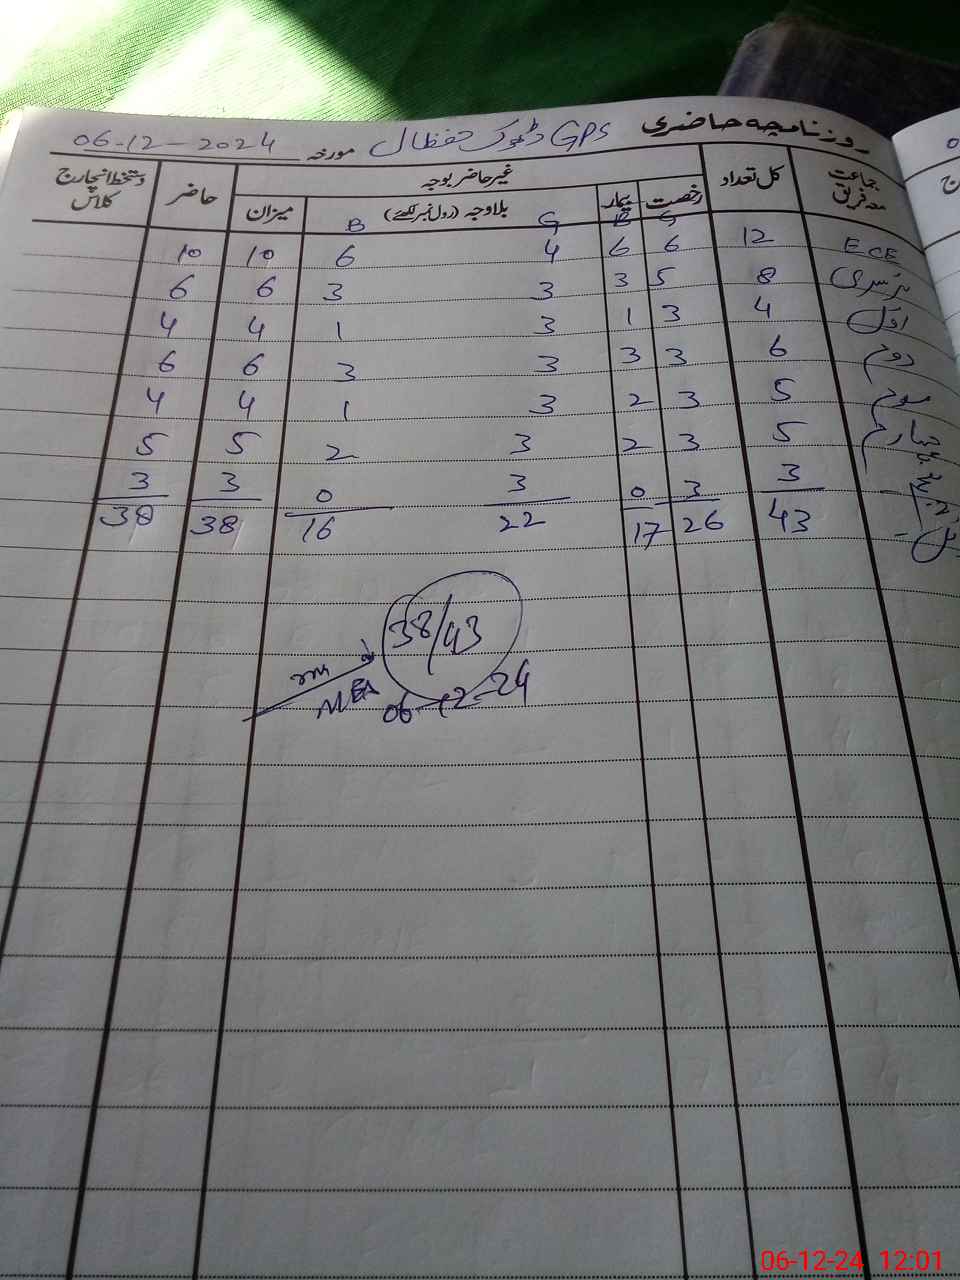 روزنامچہ حاضری GPS ڈھوک حفظال مورخہ 06-12-2024
جماعت معہ فریق کل تعداد غیر حاضر بوجہ حاضر دستخط انچارج کلاس
رخصت بیمار بلاوجہ (رول نمبر لکھئے) میزان
G B G B
ECE 12 6 6 4 6 10 10
نرسری 8 5 3 3 3 6 6
اول 4 3 1 3 1 4 4
دوم 6 3 3 3 3 6 6
سوم 5 3 2 3 1 4 4
چہارم 5 3 2 3 2 5 5
پنجم 3 3 0 3 0 3 3
43 26 17 22 16 38 38
38/43
MEA
06-12-24
06-12-24 12:01